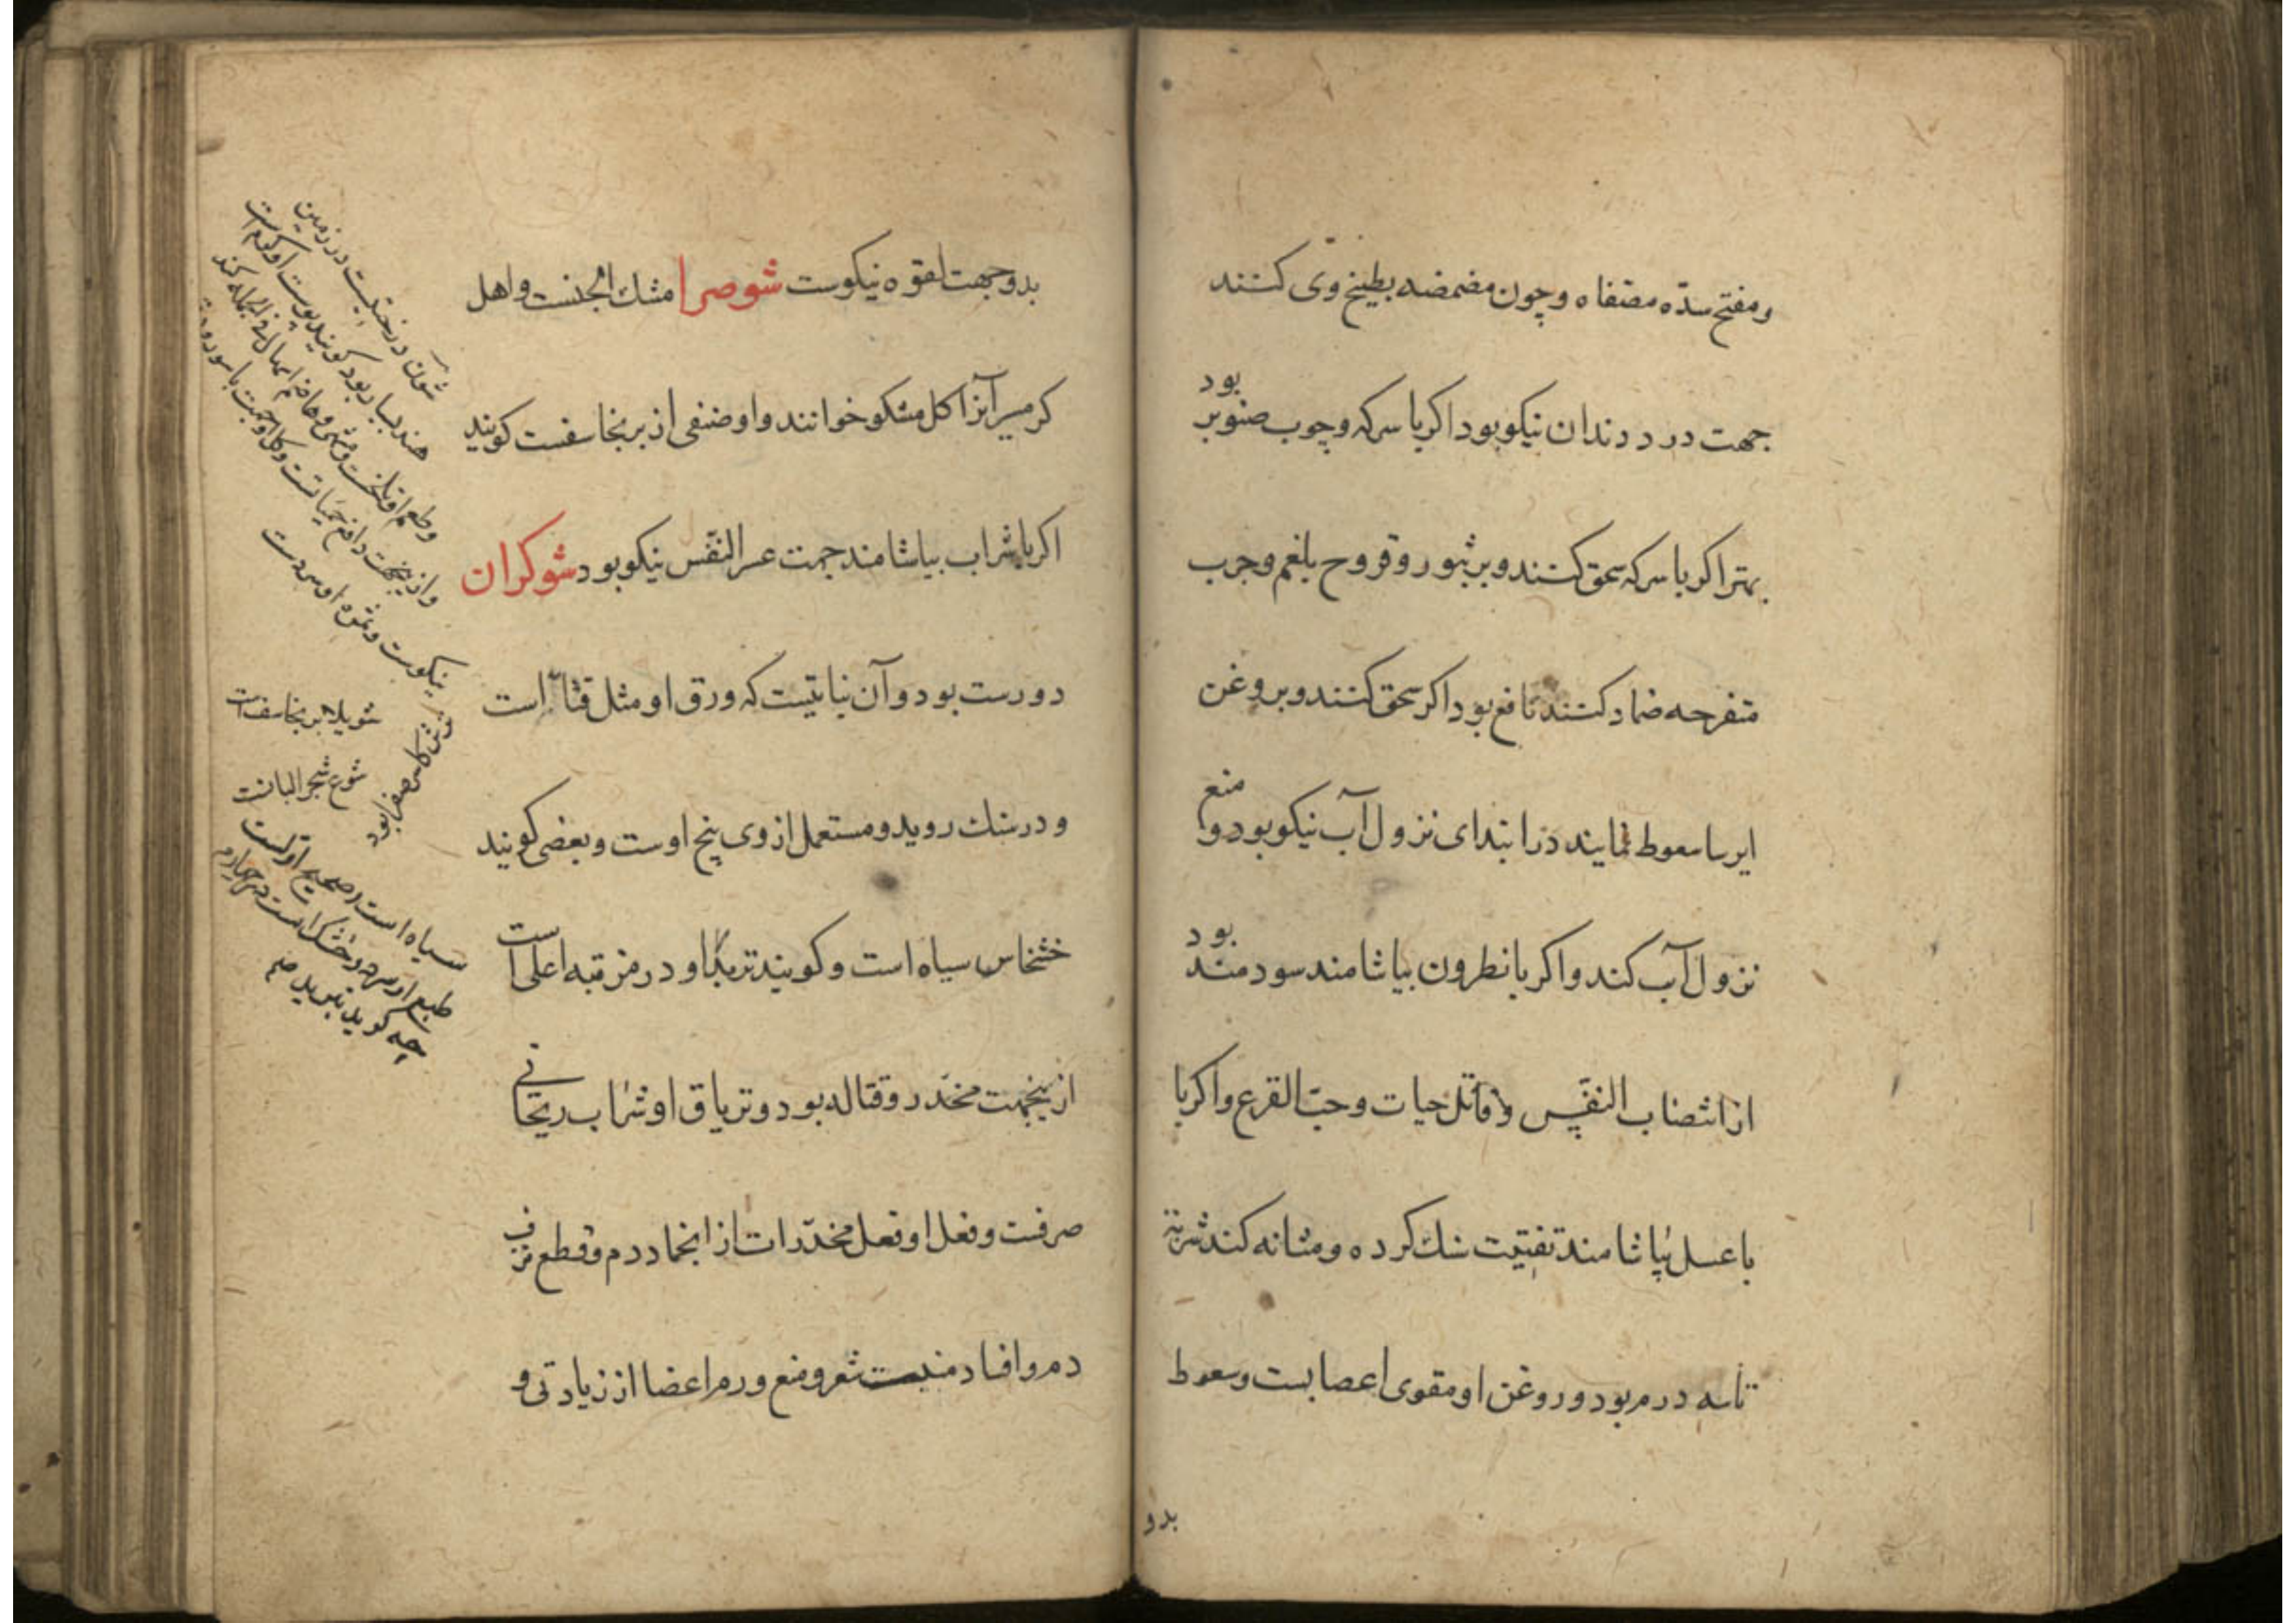 ومفتح سدّه مصفاه وچون مضمضه بطبیخ وی کنند
جهت درد دندان نیکو بود اکر با سرکه وچوب صنوبر بود
بهتر اکر با سرکه سحق کنند وبر بثور وقروح بلغم وجرب
متقرحه ضماد کنند نافع بود اکر سحق کنند وبروغن
ایرسا سعوط نمایند در ابتدای نزول آب نیکو بود و منع
نزول آب کند واکر با نطرون بیاشامند سودمند بود
از انتصاب النفس و قاتل حیات وحبّ القرع واکر با
با عسل بیاشامند تفتیت سنك کرده ومثانه کند شربته
تا سه درم بود وروغن او مقوی اعصابست وسعوط
بدو
بدو جهت لقوه نیکوست شوصرا مشك الجنست واهل
کرمسیر آنرا کل مشکو خوانند واو صنفی از برنجاسفست کویند
اکر با شراب بیاشامند جهت عسر النفس نیکو بود شوکران
دورست بود وآن نباتیست که ورق او مثل قثاء است
ودر سنك روید ومستعمل از وی بیخ اوست وبعضی کویند
خشخاس سیاه است وکویند او در مرتبه اعلی است
از ینجهت مخدر وقتاله بود وتریاق او شراب ریحانی
صرفت وفعل او فعل مخدّرات از انجماد دم وقطع نزف
دم وافساد منبت شعر ومنع ورم اعضا از زیادتی و
شوآن درختیست در زمین
هند بسیار بود کویند پوست او
وطعم او تلخست
واز ینجهت دافع حمیاتست وکل او جهت باسور
نیکوست وثمره او سردست
شویلا برنجاسفست
شوع شجر البانست
سیاه است صحیح اولست
طبع او سرد وخشك است در چهارم
چه کوید